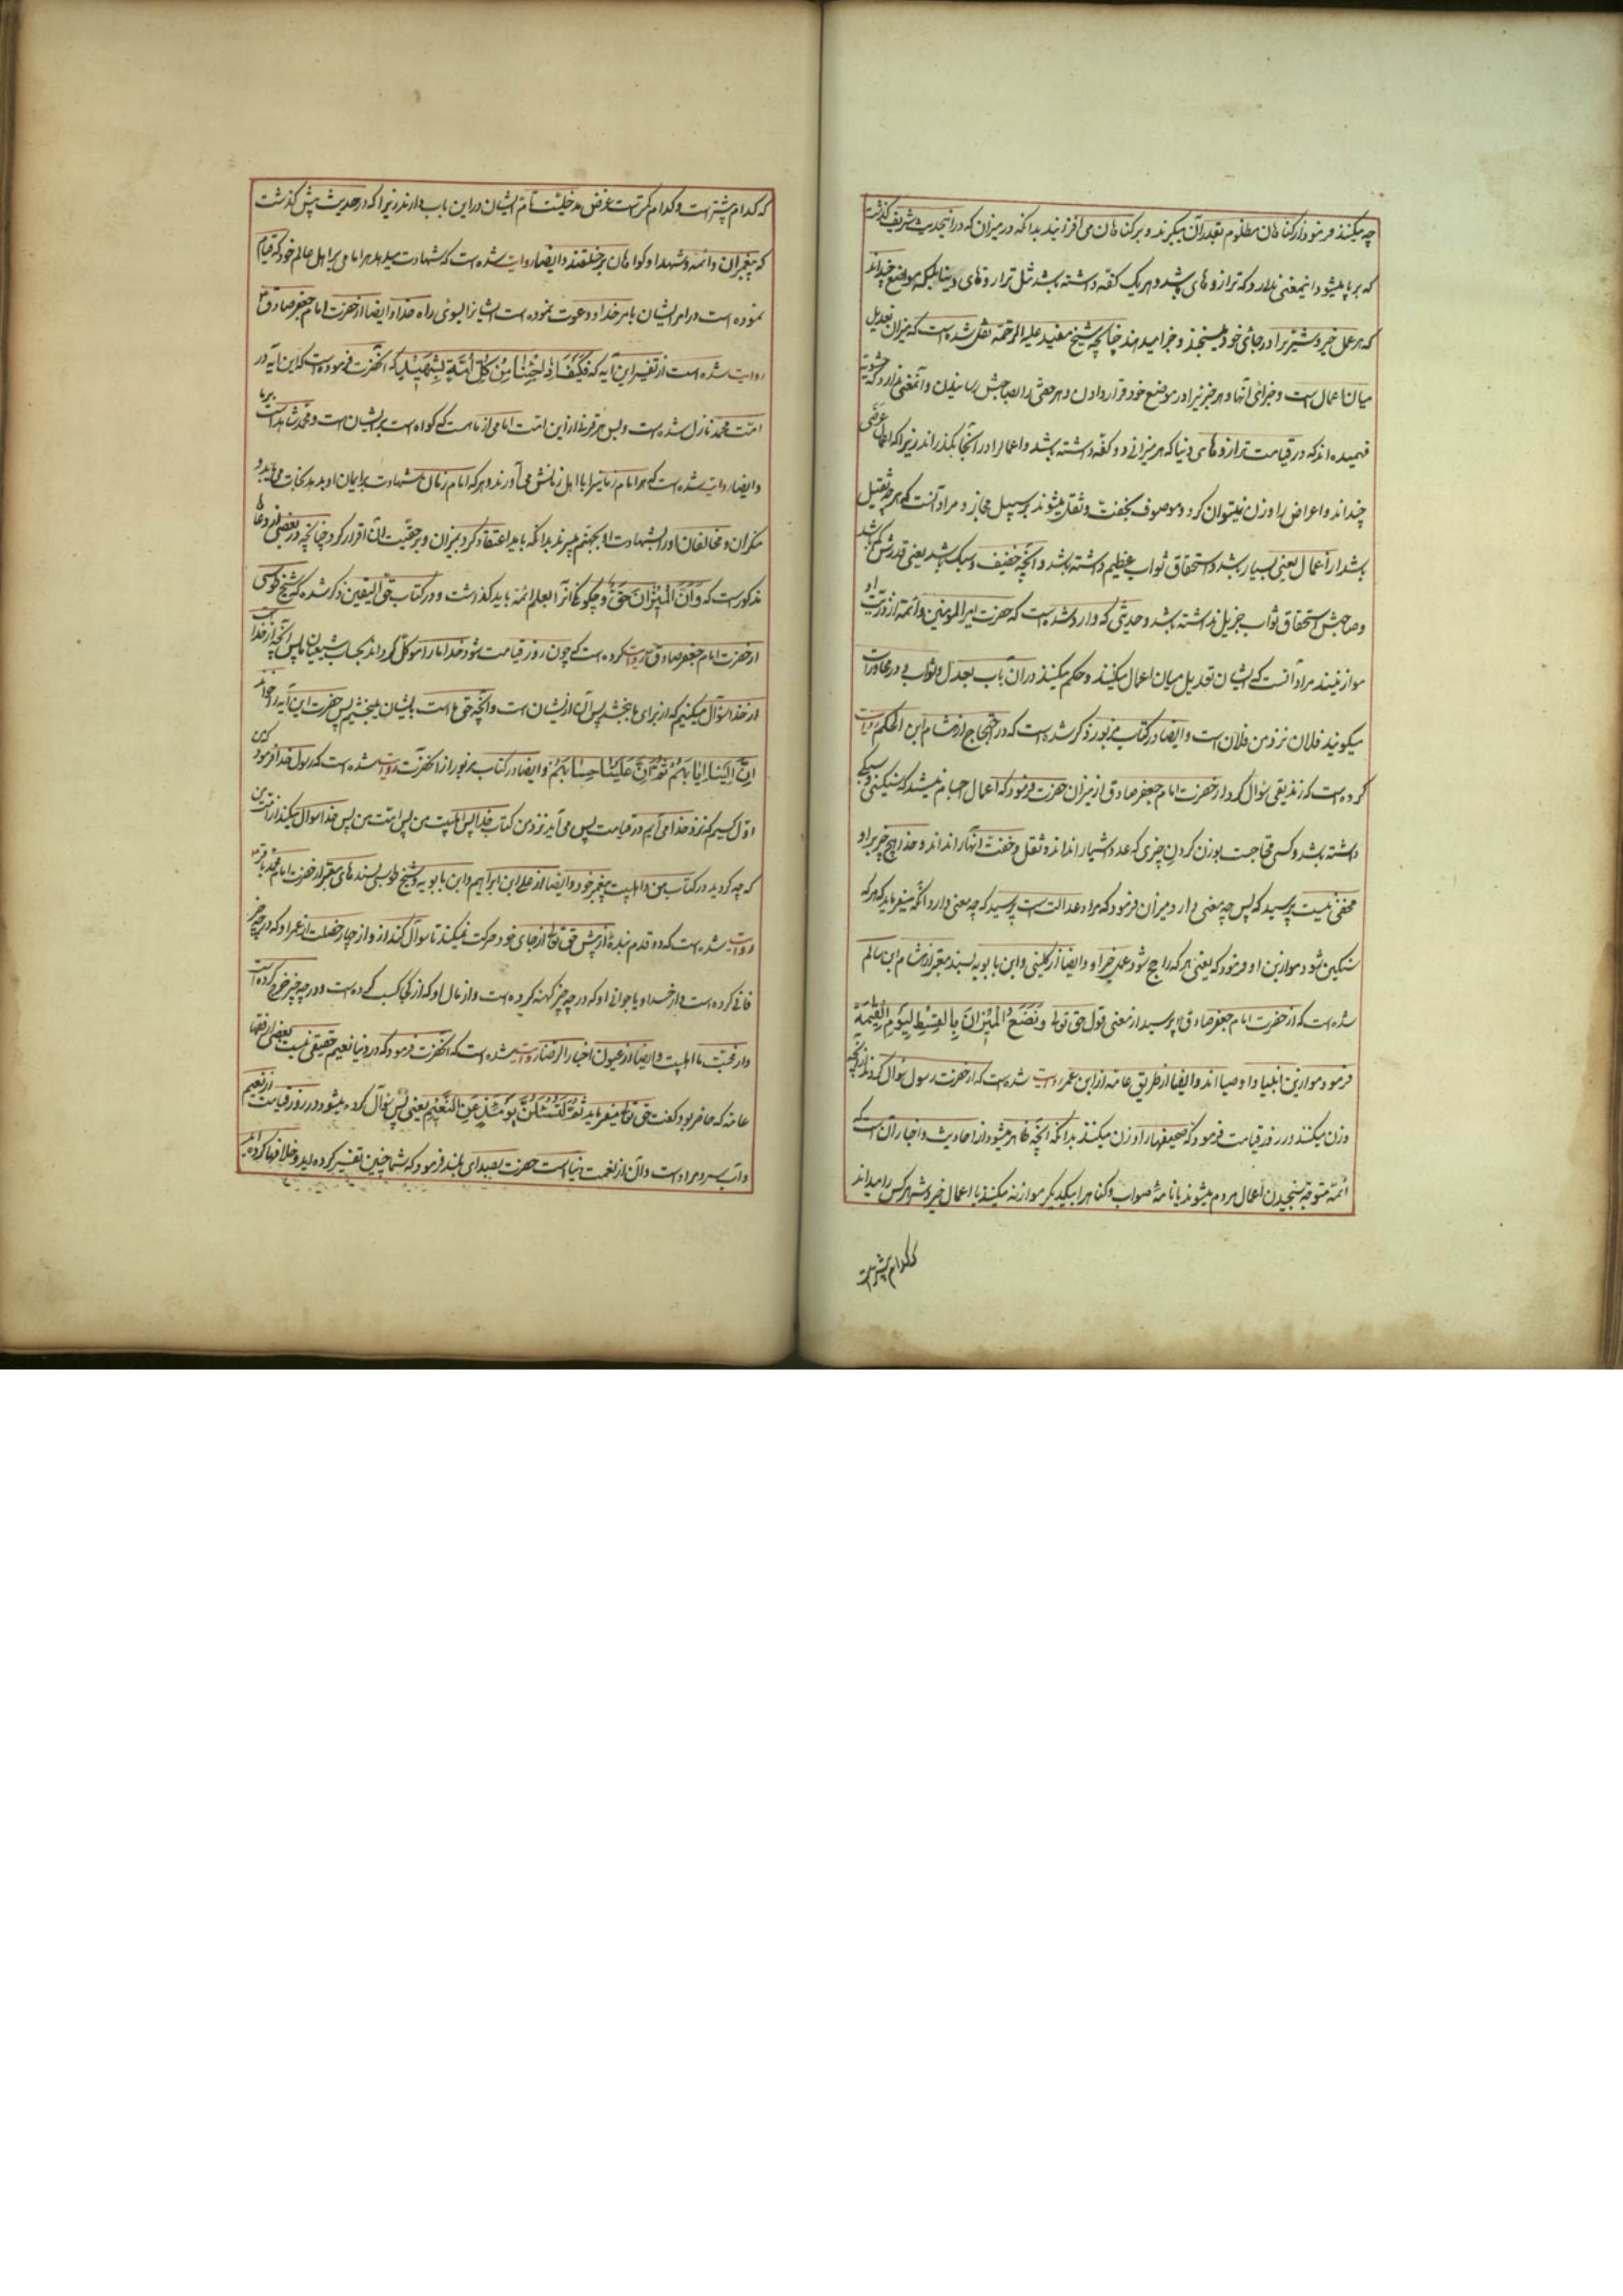 چه میکنند فرمود از کناهان مظلوم بقدر آن میکیرند و بر کناهان می افزایند بدانکه در میزان که در اینحدیث شریف کذشت
که بر پا میشود اینمعنی ندارد که ترازوهای باشد و هر یک کفه داشته باشد مثل ترازوهای دنیا بلکه موضع چند اند
که هر عمل خیر و شر برا در جای خود میسنجند و جزا میدهند چنانچه شیخ مفید علیه الرحمة نقل شده است که میزان تعدیل
میان اعمال است و جزای آنها و هر جزا برا در موضع خود قرار دادن و هر حقی را بصاحبش رسانیدن و آنمعنی ندارد که حشویه
فهمیده اند که در قیامت ترازوهای دنیا که هر میزانی دو کفه داشته باشد و اعمال را در آنجا بکذرانند زیرا که اعمال عرضی
چند اند و اعراض را وزن نمیتوان کرد و موصوف بخفت و ثقل میشوند بر سبیل مجاز و مراد آنست که هر چه ثقیل
باشد از اعمال یعنی بسیار باشد و استحقاق ثواب عظیم داشته باشد و آنچه خفیف و سبک باشد یعنی قدرش کم باشد
و صاحبش استحقاق ثواب جزیل نداشته باشد و حدیثی که وارد شده است که حضرت امیر المومنین و ائمه از ذریت او
موازینند مراد آنست که ایشان تعدیل میان اعمال میکنند و حکم میکنند در آن باب بعدل و ثواب و در محاورات
میکویند فلان نزد من فلان است و ایضا در کتاب مزبور ذکر شده است که در احتجاج از هشام ابن الحکم روایت
کرده است که زندیقی سؤال کرد از حضرت امام جعفر صادق از میزان حضرت فرمود که اعمال اجسام نمیشند که سنکینی و سبکی
داشته باشد و کسی محتاجست بوزن کردن چیزی که عدد اشیا را نداند و ثقل و خفت آنها را نداند و خدا هیچ چیز بر او
مخفی نیست پرسید که پس چه معنی دارد میزان فرمود که مراد عدالت است پرسید که چه معنی دارد آنکه میفرماید که هر که
سنکین شود موازین او فرمود که یعنی هر که راجح شود عمل خیر او و ایضا از کلینی و ابن بابویه بسند معتبر از هشام ابن سالم
شده است که از حضرت امام جعفر صادق پرسید از معنی قول حق تعالی وَنَضَعُ الْمَیْزَانَ بِالْقِسْطِ لِیَوْمِ الْقِیٰمَةِ
فرمود موازین انبیا و اوصیا اند و ایضا از طریق عامه از ابن عمر روایت شده است که از حضرت رسول سؤال کردند از آنچه
وزن میکنند در روز قیامت فرمود که صحیفها را وزن میکنند بدانکه آنچه ظاهر میشود از احادیث و اخبار آن است که
ائمه متوجه سنجیدن اعمال مردم میشوند یا نامه صواب و کناه را بیکدیکر موازنه میکنند یا اعمال خیر و شر هر کس را میدانند
که کدام بیشتر است
که کدام بیشتر است و کدام کمتر است غرض مدخلیت تام ایشان در این باب دارند زیرا که در حدیث پیش کذشت
که پیغمبران و ائمه و شهدا و کواهان بر خلقند و ایضا روایت شده است که شهادت میدهد هر امامی بر اهل عالم خود که قیام
نموده است در امر ایشان بامر خدا و دعوت نموده است ایشانرا بسوی راه خدا و ایضا از حضرت امام جعفر صادق
روایت شده است از تفسیر این آیه که فَکَیْفَ اِذٰا جِئْنٰا مِنْ کُلِّ اُمَّةٍ بِشَهٖیْدٍ که آنحضرت فرموده است که این آیه در
امت محمد نازل شده است و بس هر قرنی از این امت امامی از ما هست که کواه است بر ایشان است و محمد شاهد است بر ما
و ایضا روایت شده است که هر امام زمانیرا با اهل زمانش می آورند و هر که امام زمان شهادت بر ایمان او بدهد نجات می یابد و
منکران و مخالفان او را بشهادت او بجهنم میبرند بدانکه باید اعتقاد کرد بمیزان و بر حقیت آن اقرار کرد چنانچه در بعضی از دعاها
مذکور است که وَاَنَّ الْمٖیزٰانَ حَقٌّ و چکونکی آنرا بعلم ائمه باید کذاشت و در کتاب حق الیقین ذکر شده که شیخ طوسی
از حضرت امام جعفر صادق روایت کرده است که چون روز قیامت شود خدا ما را موکل کرداند بحساب شیعیان ما پس آنچه از خدا است
از خدا سؤال میکنیم که از برای ما ببخشد پس آن از ایشان است و آنچه حق ما است بایشان میبخشیم پس حضرت این آیه را خواند
اِنَّ اِلَیْنٰا اِیٰابَهُمْ ثُمَّ اِنَّ عَلَیْنٰا حِسٰابَهُمْ و ایضا در کتاب مزبور از آنحضرت روایت شده است که رسول خدا فرمود که من
اول کسیم که نزد خدا می آیم در قیامت پس می آید نزد من کتاب خدا پس اهلبیت من پس امت من پس خدا سوال میکند از امت من
که چه کردید در کتاب من و اهلبیت پیغمبر خود و ایضا از علی ابن ابراهیم و ابن بابویه و شیخ طوسی بسندهای معتبر از حضرت امام محمد باقر
روایت شده است که دو قدم بندۀ از پیش حق تعالی از جای خود حرکت نمیکند تا سوال کند از و از چهار خصلت از عمر او که در چه چیز
فانی کرده است و از جسد او یا جوانی او که در چه چیز کهنه کرده است و از مال او که از کجا کسب کرده است و در چه چیز خرج کرده است
و از محبت ما اهلبیت و ایضا از عیون اخبار الرضا روایت شده است که آنحضرت فرمود که در دنیا نعیم حقیقی نیست بعضی از فقها
عامه که حاضر بود کفت حق تعالی میفرماید ثُمَّ لَتُسْئَلُنَّ یَوْمَئِذٍ عَنِ النَّعٖیْمِ یعنی پس سؤال کرده میشود در روز قیامت از نعیم
و آب سرد مراد است و آن از نعمت دنیا است حضرت بصدای بلند فرمود که شما چنین تفسیر کرده اید و خلافها کرده اید